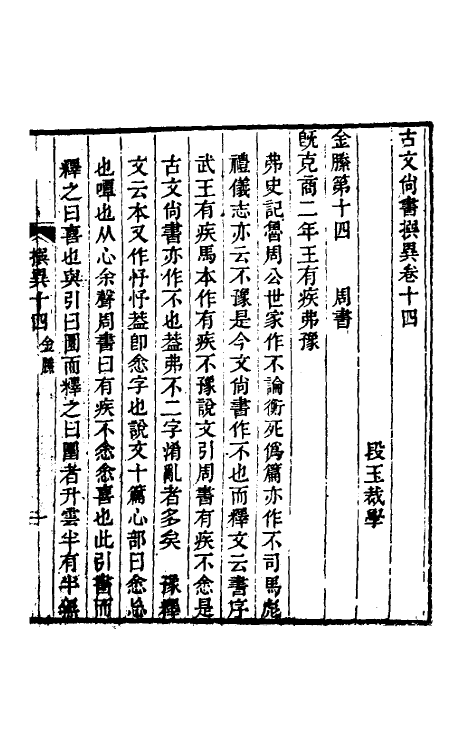 古文尚書撰異卷十四
段玉裁學
金縢第十四　周書
旣克商二年王有疾弗豫
弗史記魯周公世家作不論衡死僞篇亦作不司馬彪
禮儀志亦云不豫是今文尚書作不也而釋文云書序
武王有疾馬本作有疾不豫說文引周書有疾不悆是
古文尚書亦作不也葢弗不二字淆亂者多矣　豫釋
文云本又作忬忬葢卽悆字也說文十篇心部曰悆忘
也嘾也从心余聲周書曰有疾不悆悆喜也此引書而
釋之曰喜也與引曰圛而釋之曰圛者升雲半有半無
撰異十四　金縢　一